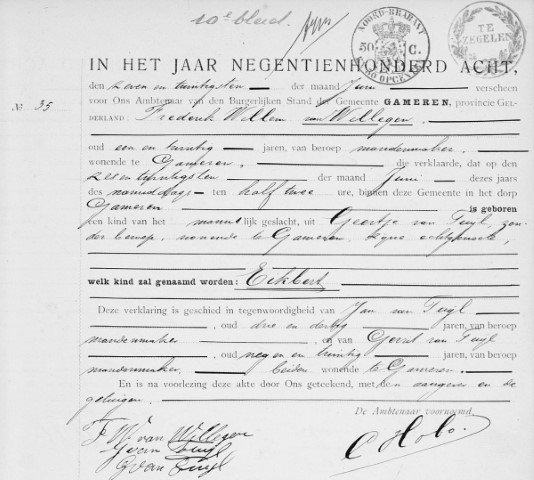 10e blad.
NOORD-BRABANT
50 C.
50 OPCEN
TE
ZEGELEN
IN HET JAAR NEGENTIENHONDERD ACHT,
den zeven en twintigsten der maand Juni verscheen
No 35
voor Ons Ambtenaar van den Burgerlijken Stand der Gemeente GAMEREN, provincie GEL-
DERLAND: Frederik Willem van Willegen,
oud een en twintig jaren, van beroep mandenmaker,
wonende te Gameren, die verklaarde, dat op den
zes en twintigsten der maand Juni dezes jaars
des namiddags ten half twee ure, binnen deze Gemeente in het dorp
Gameren is geboren
een kind van het mannelijk geslacht, uit Geertje van Tuijl, zon-
der beroep, wonende te Gameren, zijne echtgenoote,
welk kind zal genaamd worden: Eckbert
Deze verklaring is geschied in tegenwoordigheid van Jan van Tuijl
, oud drie en dertig jaren, van beroep
mandenmaker, en van Gerrit van Tuijl
, oud negen en twintig jaren, van beroep
mandenmaker, beiden wonende te Gameren.
En is na voorlezing deze akte door Ons geteekend, met den aangever en de
getuigen.
De Ambtenaar voornoemd,
F W van Willegen
J van Tuijl
G van Tuijl
C Hobo.